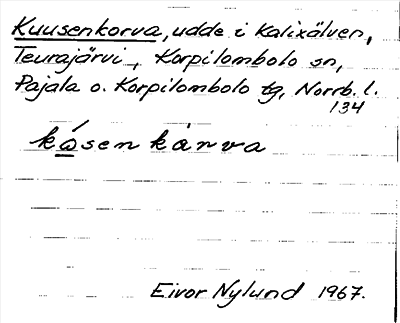 Kuusenkorva, udde i Kalixälven,
Teurajärvi, Korpilombolo sn,
Pajala o. Korpilombolo tg, Norrb. l.
134
kósen kårva
Eivor Nylund 1967.